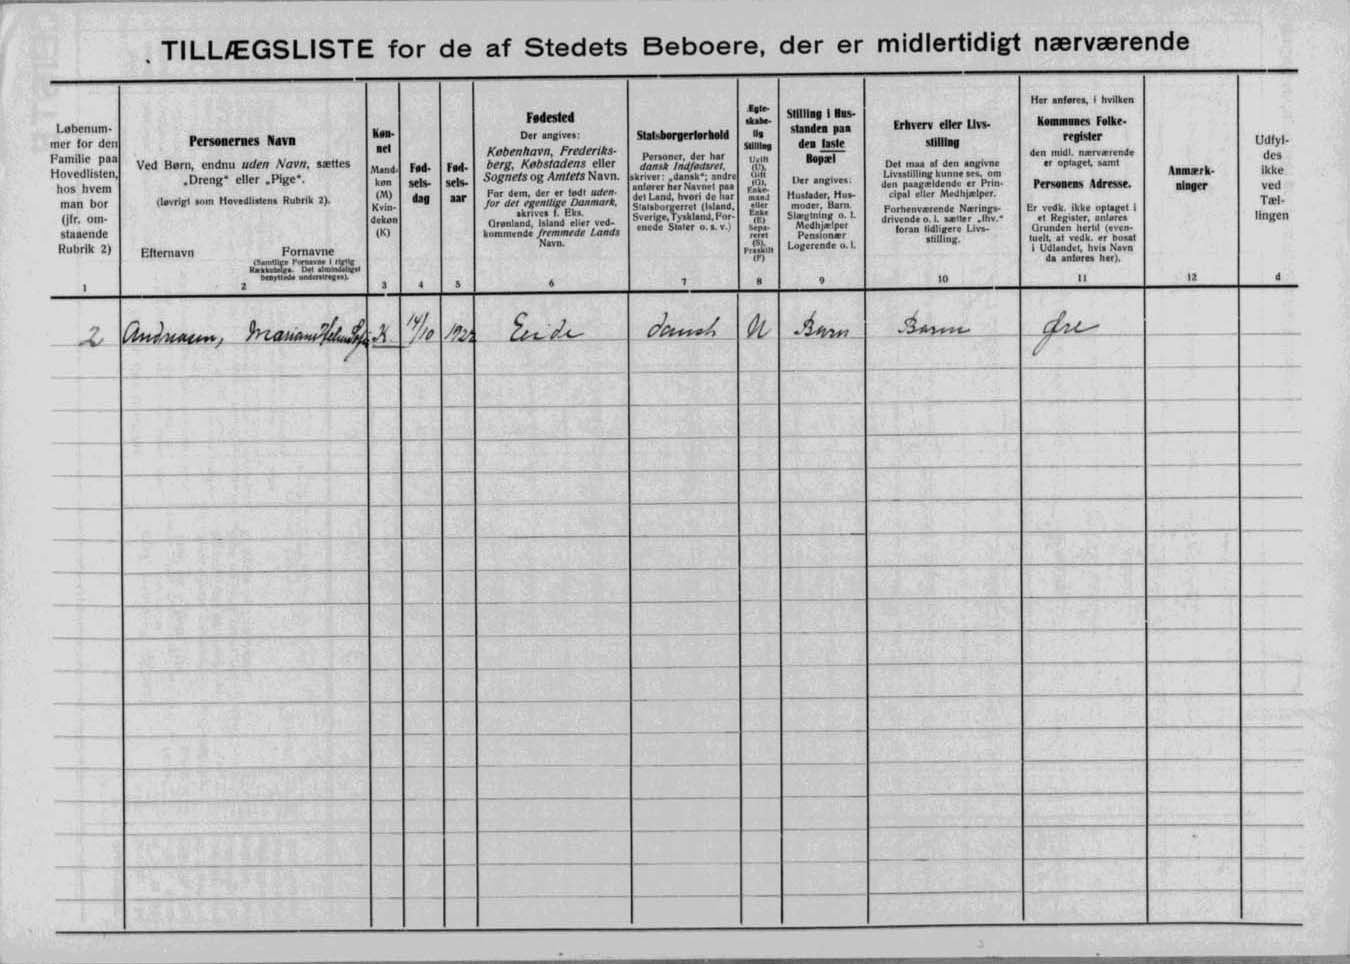 TILLÆGSLISTE for de af Stedets Beboere, der er midlertidigt nærværende
Løbenum-
mer for den
Familie paa
Hovedlisten,
hos hvem
man bor
(jfr. om-
staaende
Rubrik 2)
1
Personernes Navn
Ved Børn, endnu uden Navn, sættes
„Dreng“ eller „Pige“.
(Iøvrigt som Hovedlistens Rubrik 2).
Efternavn Fornavne
(Samtlige Fornavne i rigtig
Rækkefølge. Det almindeligst
benyttede understreges).
2
Køn-
net
Mand-
køn
(M)
Kvin-
dekøn
(K)
3
Fød-
sels-
dag
4
Fød-
sels-
aar
5
Fødested
Der angives:
København, Frederiks-
berg, Købstadens eller
Sognets og Amtets Navn.
For dem, der er født uden-
for det egentlige Danmark,
skrives f. Eks.
Grønland, Island eller ved-
kommende fremmede Lands
Navn.
6
Statsborgerforhold
Personer, der har
dansk Indfødsret,
skriver: „dansk“; andre
anfører her Navnet paa
det Land, hvori de har
Statsborgerret (Island,
Sverige, Tyskland, For-
enede Stater o. s. v.)
7
Ægte-
skabe-
lig
Stilling
Ugift
(U),
Gift
(G),
Enke-
mand
eller
Enke
(E)
Sepa-
reret
(S),
Fraskilt
(F)
8
Stilling i Hus-
standen paa
den faste
Bopæl
Der angives:
Husfader, Hus-
moder, Barn.
Slægtning o. l.
Medhjælper
Pensionær
Logerende o. l.
9
Erhverv eller Livs-
stilling
Det maa af den angivne
Livsstilling kunne ses, om
den paagældende er Prin-
cipal eller Medhjælper.
Forhenværende Nærings-
drivende o. l. sætter „fhv.“
foran tidligere Livs-
stilling.
10
Her anføres, i hvilken
Kommunes Folke-
register
den midl. nærværende
er optaget, samt
Personens Adresse.
Er vedk. ikke optaget i
et Register, anføres
Grunden hertil (even-
tuelt, at vedk. er bosat
i Udlandet, hvis Navn
da anføres her).
11
Anmærk-
ninger
12
Udfyl-
des
ikke
ved
Tæl-
lingen
d
2 Andreasen, K. 14/10 dansk U Barn Barn Øre